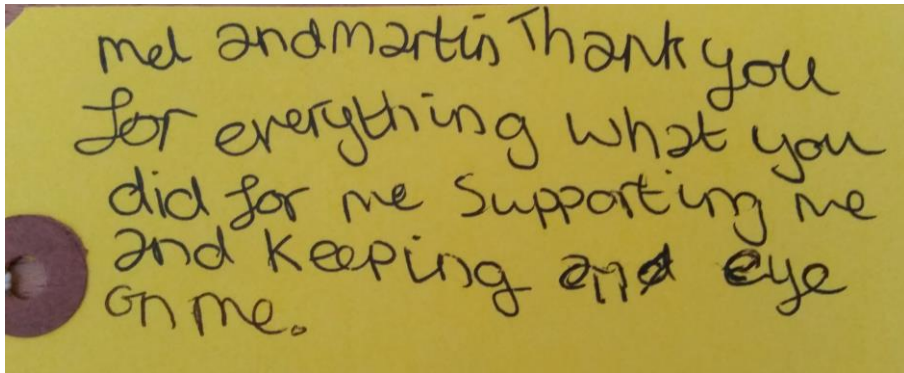 mel andmartin Thank you
for everything what you
did for me supporting me
and keeping and eye
on me.